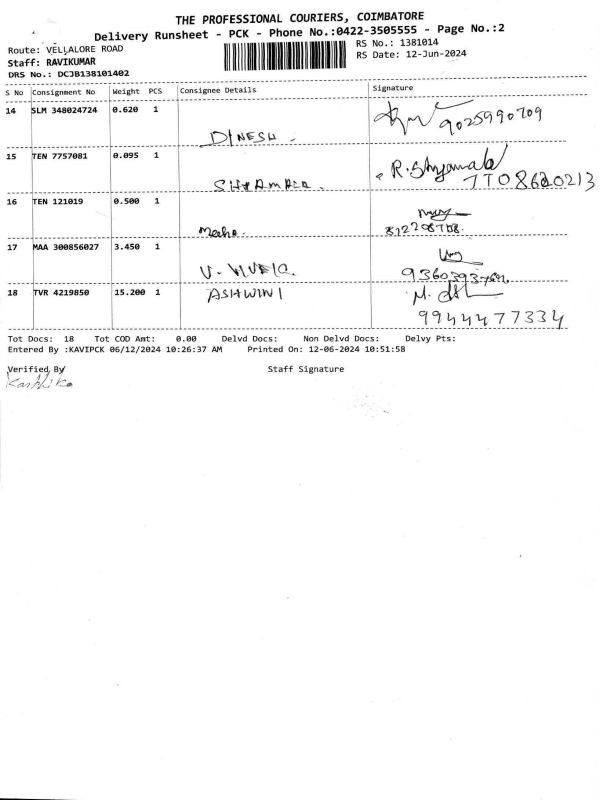 THE PROFESSIONAL COURIERS, COIMBATORE
Delivery Runsheet - PCK - Phone No.:0422-3505555 - Page No.:2
Route: VELLALORE ROAD
RS No.: 1381014
Staff: RAVIKUMAR
RS Date: 12-Jun-2024
DRS No.: DCJB138101402
S No Consignment No Weight PCS Consignee Details Signature
14 SLM 348024724 0.620 1
DINESH. 9025990709
15 TEN 7757081 0.095 1 R. Shyamala
SHYAMALA.
16 TEN 121019 0.500 1
17 MAA 300856027 3.450 1
18 TVR 4219850 15.200 1 ASHWINI
9944477334
Tot Docs: 18 Tot COD Amt: 0.00 Delvd Docs: Non Delvd Docs: Delvy Pts:
Entered By :KAVIPCK 06/12/2024 10:26:37 AM Printed On: 12-06-2024 10:51:58
Verified By Staff Signature